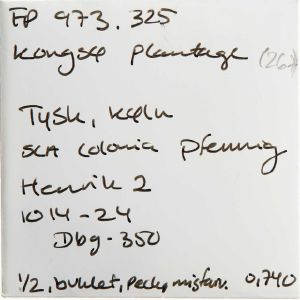 FP 973.325
Kongsø Plantage (267)
Tysk, Køln
SCA Colonia Pfennig
Henrik 2
1014-24
Dbg-350
1/2, buklet, pecks, misfarv. 0,740